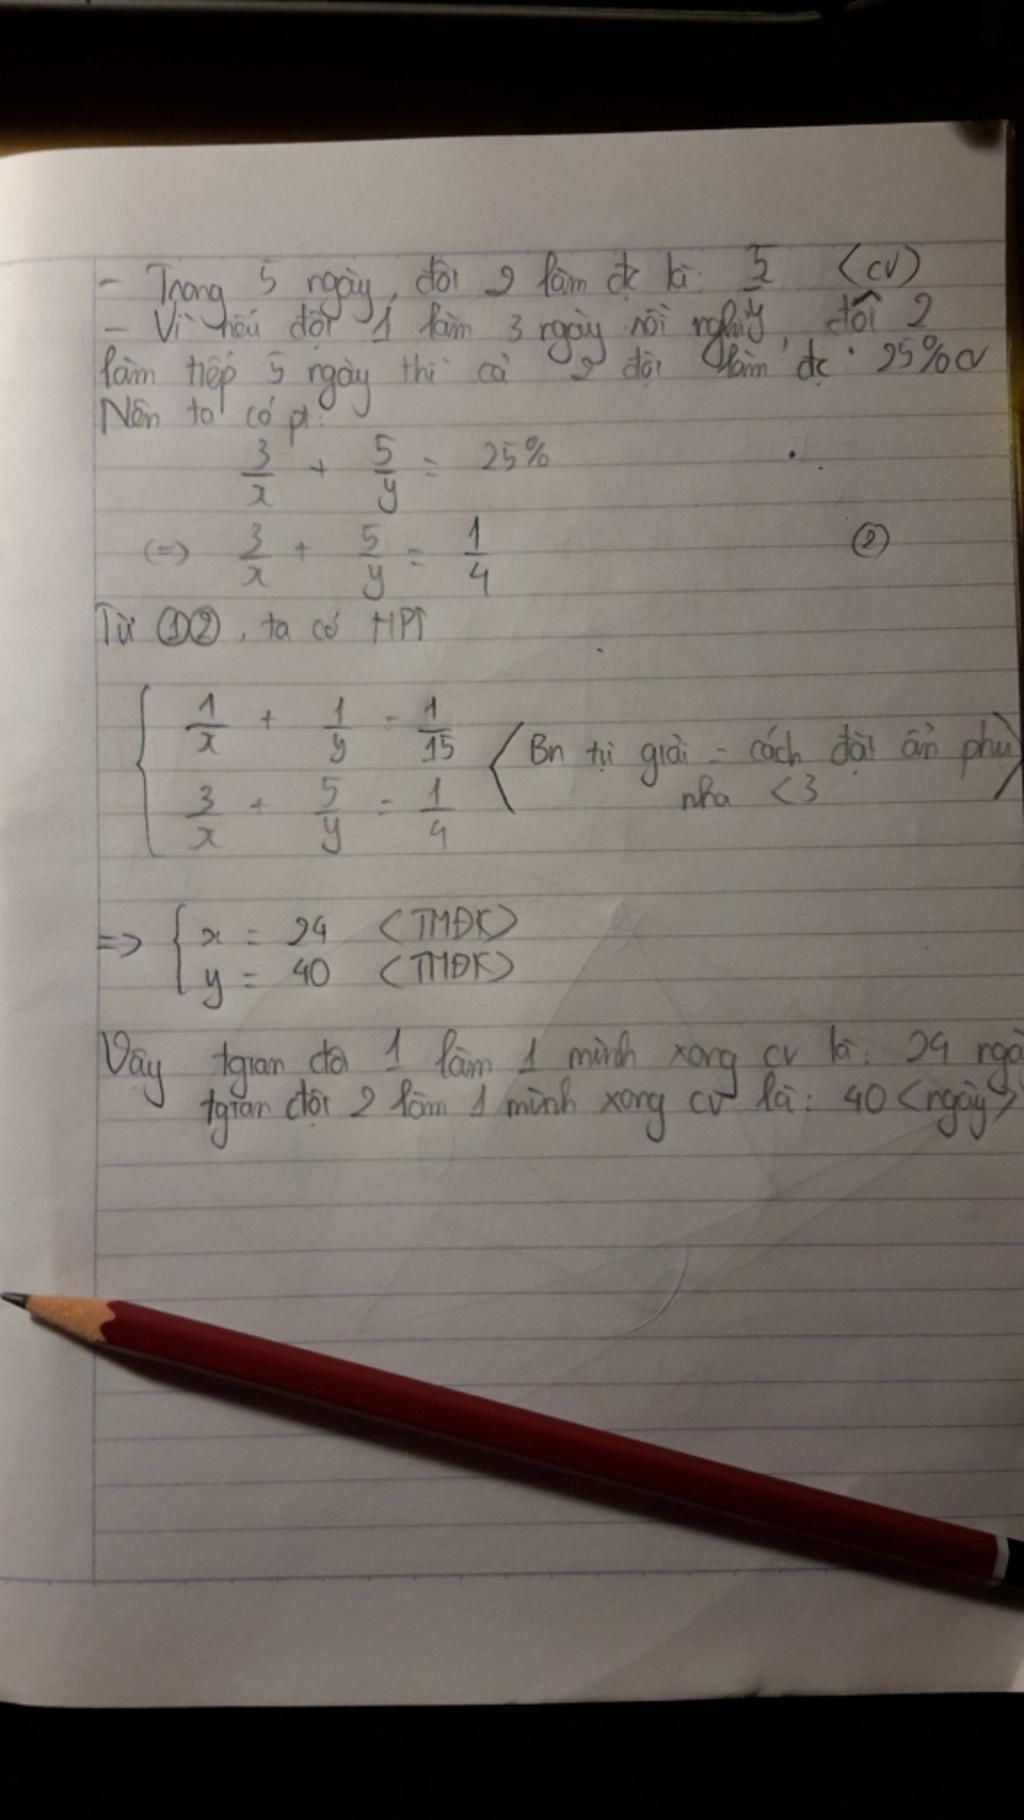 - Trong 5 ngày, đội 2 làm đc là: 5/y (cv)
- Vì nếu đội 1 làm 3 ngày rồi nghỉ, đội 2
làm tiếp 5 ngày thì cả 2 đội làm đc 25% cv
Nên ta có pt:
3/x + 5/y = 25%
(=) 3/x + 5/y = 1/4 ②
Từ ①②, ta có HPT
{ 1/x + 1/y = 1/15
3/x + 5/y = 1/4
(Bn tự giải = cách đặt ẩn phụ
nha <3)
=> { x = 24 (TMĐK)
y = 40 (TMĐK)
Vậy tgian đội 1 làm 1 mình xong cv là: 24 ngà
tgian đội 2 làm 1 mình xong cv là: 40 <ngày>